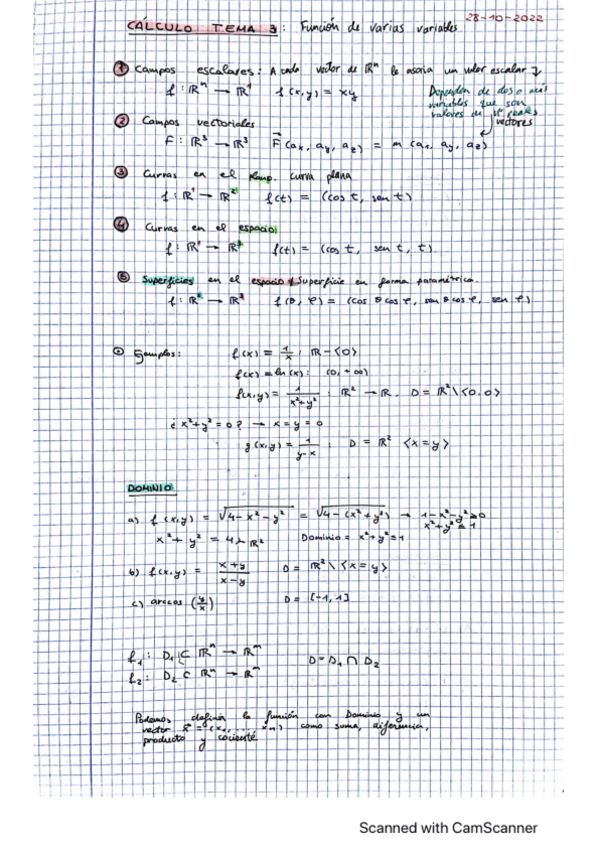 28-10-2022
CÁLCULO TEMA 3: Función de varias variables
① Campos escalares: A cada vector de ℝⁿ le asocia un valor escalar
f: ℝⁿ → ℝ¹ f(x,y) = xy
Dependen de dos o más
variables que son
valores de
vectores
② Campos vectoriales
F: ℝ³ → ℝ³ F⃗(ax, ay, az) = m(a1, ay, az)
③ Curvas en el curva plana
f: ℝ¹ → ℝ² f(t) = (cos t, sen t)
④ Curvas en el espacio
f: ℝ¹ → ℝ³ f(t) = (cos t, sen t, t)
⑤ Superficies en el espacio / Superficie en forma paramétrica.
f: ℝ² → ℝ³ f(θ, φ) = (cos θ cos φ, sen θ cos φ, sen φ)
Ejemplos: f(x) = 1/x : ℝ - {0}
f(x) = ln(x): (0, +∞)
f(x,y) = 1/(x²+y²) : ℝ² → ℝ. D = ℝ² \ {0,0}
¿x²+y²=0? → x=y=0
g(x,y) = 1/(y-x) : D = ℝ² {x=y}
DOMINIO
a) f(x,y) = √(4-x²-y²) = √(4-(x²+y²)) → 1-x²-y²≥0
x²+y²≤1
x²+y² = 4 ℝ² Dominio = x²+y²≤1
b) f(x,y) = (x+y)/(x-y) D = ℝ² \ {x=y}
c) arccos (y/x) D = [-1,1]
f₁: D₁ ⊂ ℝⁿ → ℝᵐ
D = D₁ ∩ D₂
f₂: D₂ ⊂ ℝⁿ → ℝᵐ
Podemos definir la función con Dominio y un
vector x⃗ = (x₁, ..., xn) como suma, diferencia,
producto y cociente
Scanned with CamScanner